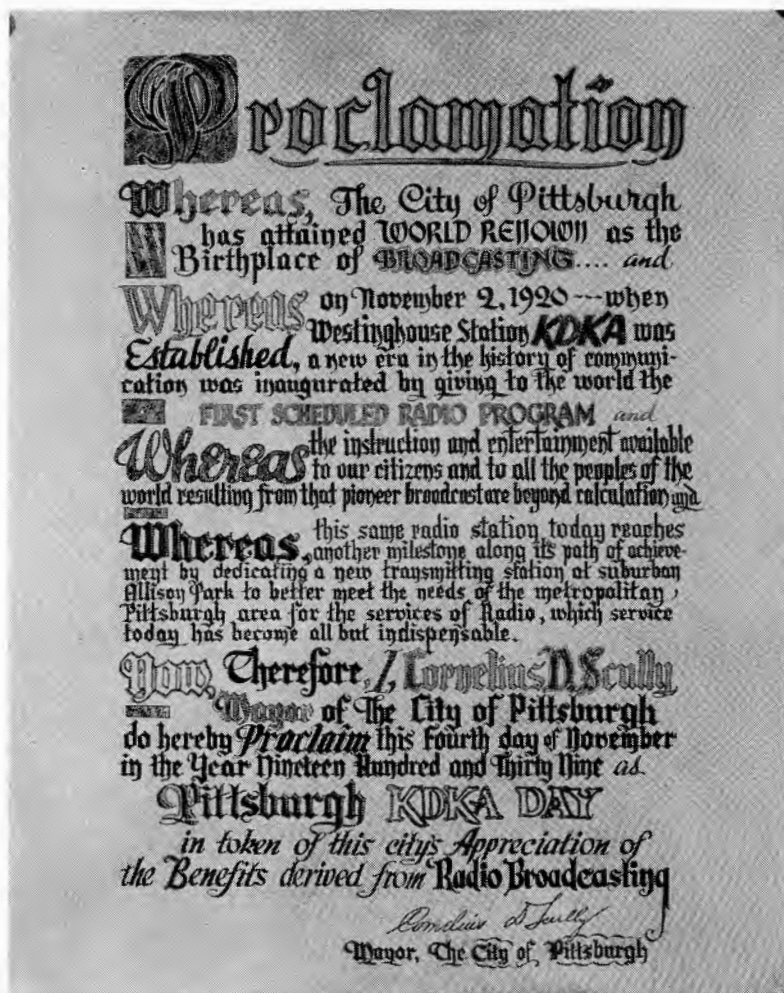 Proclamation
Whereas, The City of Pittsburgh
has attained WORLD RENOWN as the
Birthplace of BROADCASTING.... and
Whereas on November 2, 1920---when
Westinghouse Station KDKA was
Established, a new era in the history of communi-
cation was inaugurated by giving to the world the
FIRST SCHEDULED RADIO PROGRAM and
Whereas the instruction and entertainment available
to our citizens and to all the peoples of the
world resulting from that pioneer broadcast are beyond calculation and
Whereas, this same radio station today reaches
another milestone along its path of achieve-
ment by dedicating a new transmitting station at suburban
Allison Park to better meet the needs of the metropolitan,
Pittsburgh area for the services of Radio, which service
today has become all but indispensable.
Now, Therefore, I, Cornelius D. Scully
Mayor of The City of Pittsburgh
do hereby Proclaim this Fourth day of November
in the Year Nineteen Hundred and Thirty Nine as
Pittsburgh KDKA DAY
in token of this city's Appreciation of
the Benefits derived from Radio Broadcasting
Cornelius D Scully
Mayor, The City of Pittsburgh